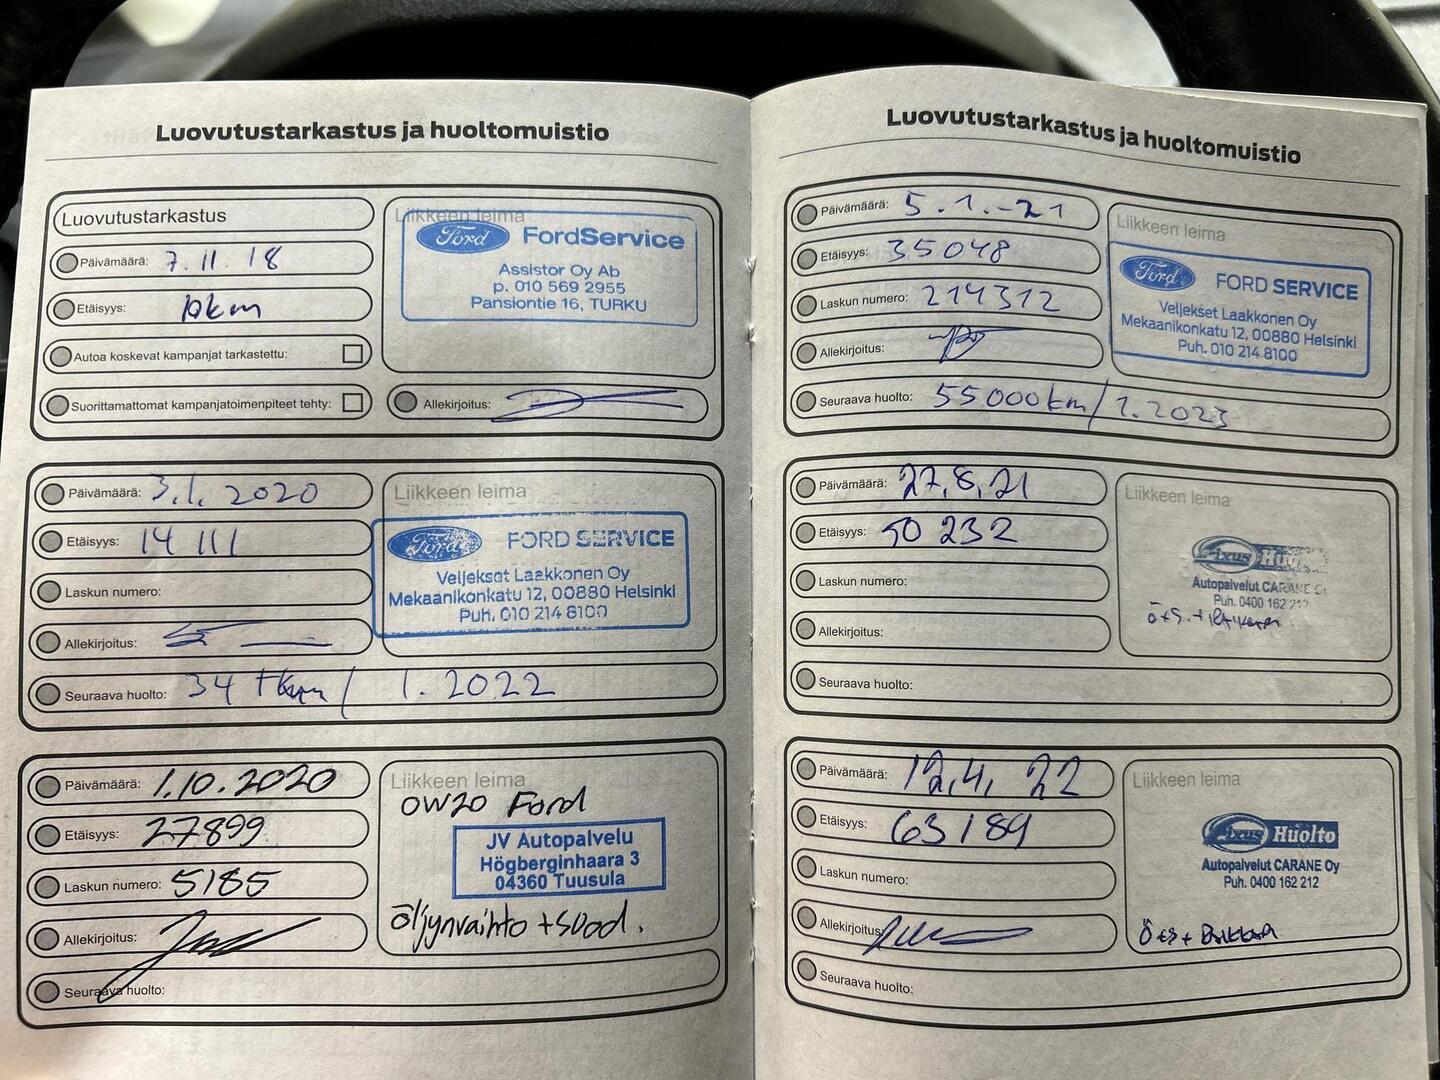 Luovutustarkastus ja huoltomuistio
Luovutustarkastus
Päivämäärä: 7.11.18
Etäisyys: 10km
Autoa koskevat kampanjat tarkastettu:
Suorittamattomat kampanjatoimenpiteet tehty:
Liikkeen leima
Ford FordService
Assistor Oy Ab
p. 010 569 2955
Pansiontie 16, TURKU
Allekirjoitus:
Päivämäärä: 3.1.2020
Etäisyys: 14 111
Laskun numero:
Allekirjoitus:
Seuraava huolto: 34 tkm / 1.2022
Liikkeen leima
Ford FORD SERVICE
Veljekset Laakkonen Oy
Mekaanikonkatu 12, 00880 Helsinki
Puh. 010 214 8100
Päivämäärä: 1.10.2020
Etäisyys: 27899
Laskun numero: 5185
Allekirjoitus:
Seuraava huolto:
Liikkeen leima
0W20 Ford
JV Autopalvelu
Högberginhaara 3
04360 Tuusula
öljynvaihto + suod.
Luovutustarkastus ja huoltomuistio
Päivämäärä: 5.1.-21
Etäisyys: 35048
Laskun numero: 214312
Allekirjoitus:
Seuraava huolto: 55000km / 1.2023
Liikkeen leima
Ford FORD SERVICE
Veljekset Laakkonen Oy
Mekaanikonkatu 12, 00880 Helsinki
Puh. 010 214 8100
Päivämäärä: 27.8.21
Etäisyys: 50 232
Laskun numero:
Allekirjoitus:
Seuraava huolto:
Liikkeen leima
Fixus Huolto
Autopalvelut CARANE Oy
Puh. 0400 162 212
Ö+S.+
Päivämäärä: 12.4.22
Etäisyys: 63189
Laskun numero:
Allekirjoitus:
Seuraava huolto:
Liikkeen leima
Fixus Huolto
Autopalvelut CARANE Oy
Puh. 0400 162 212
Ö+S+